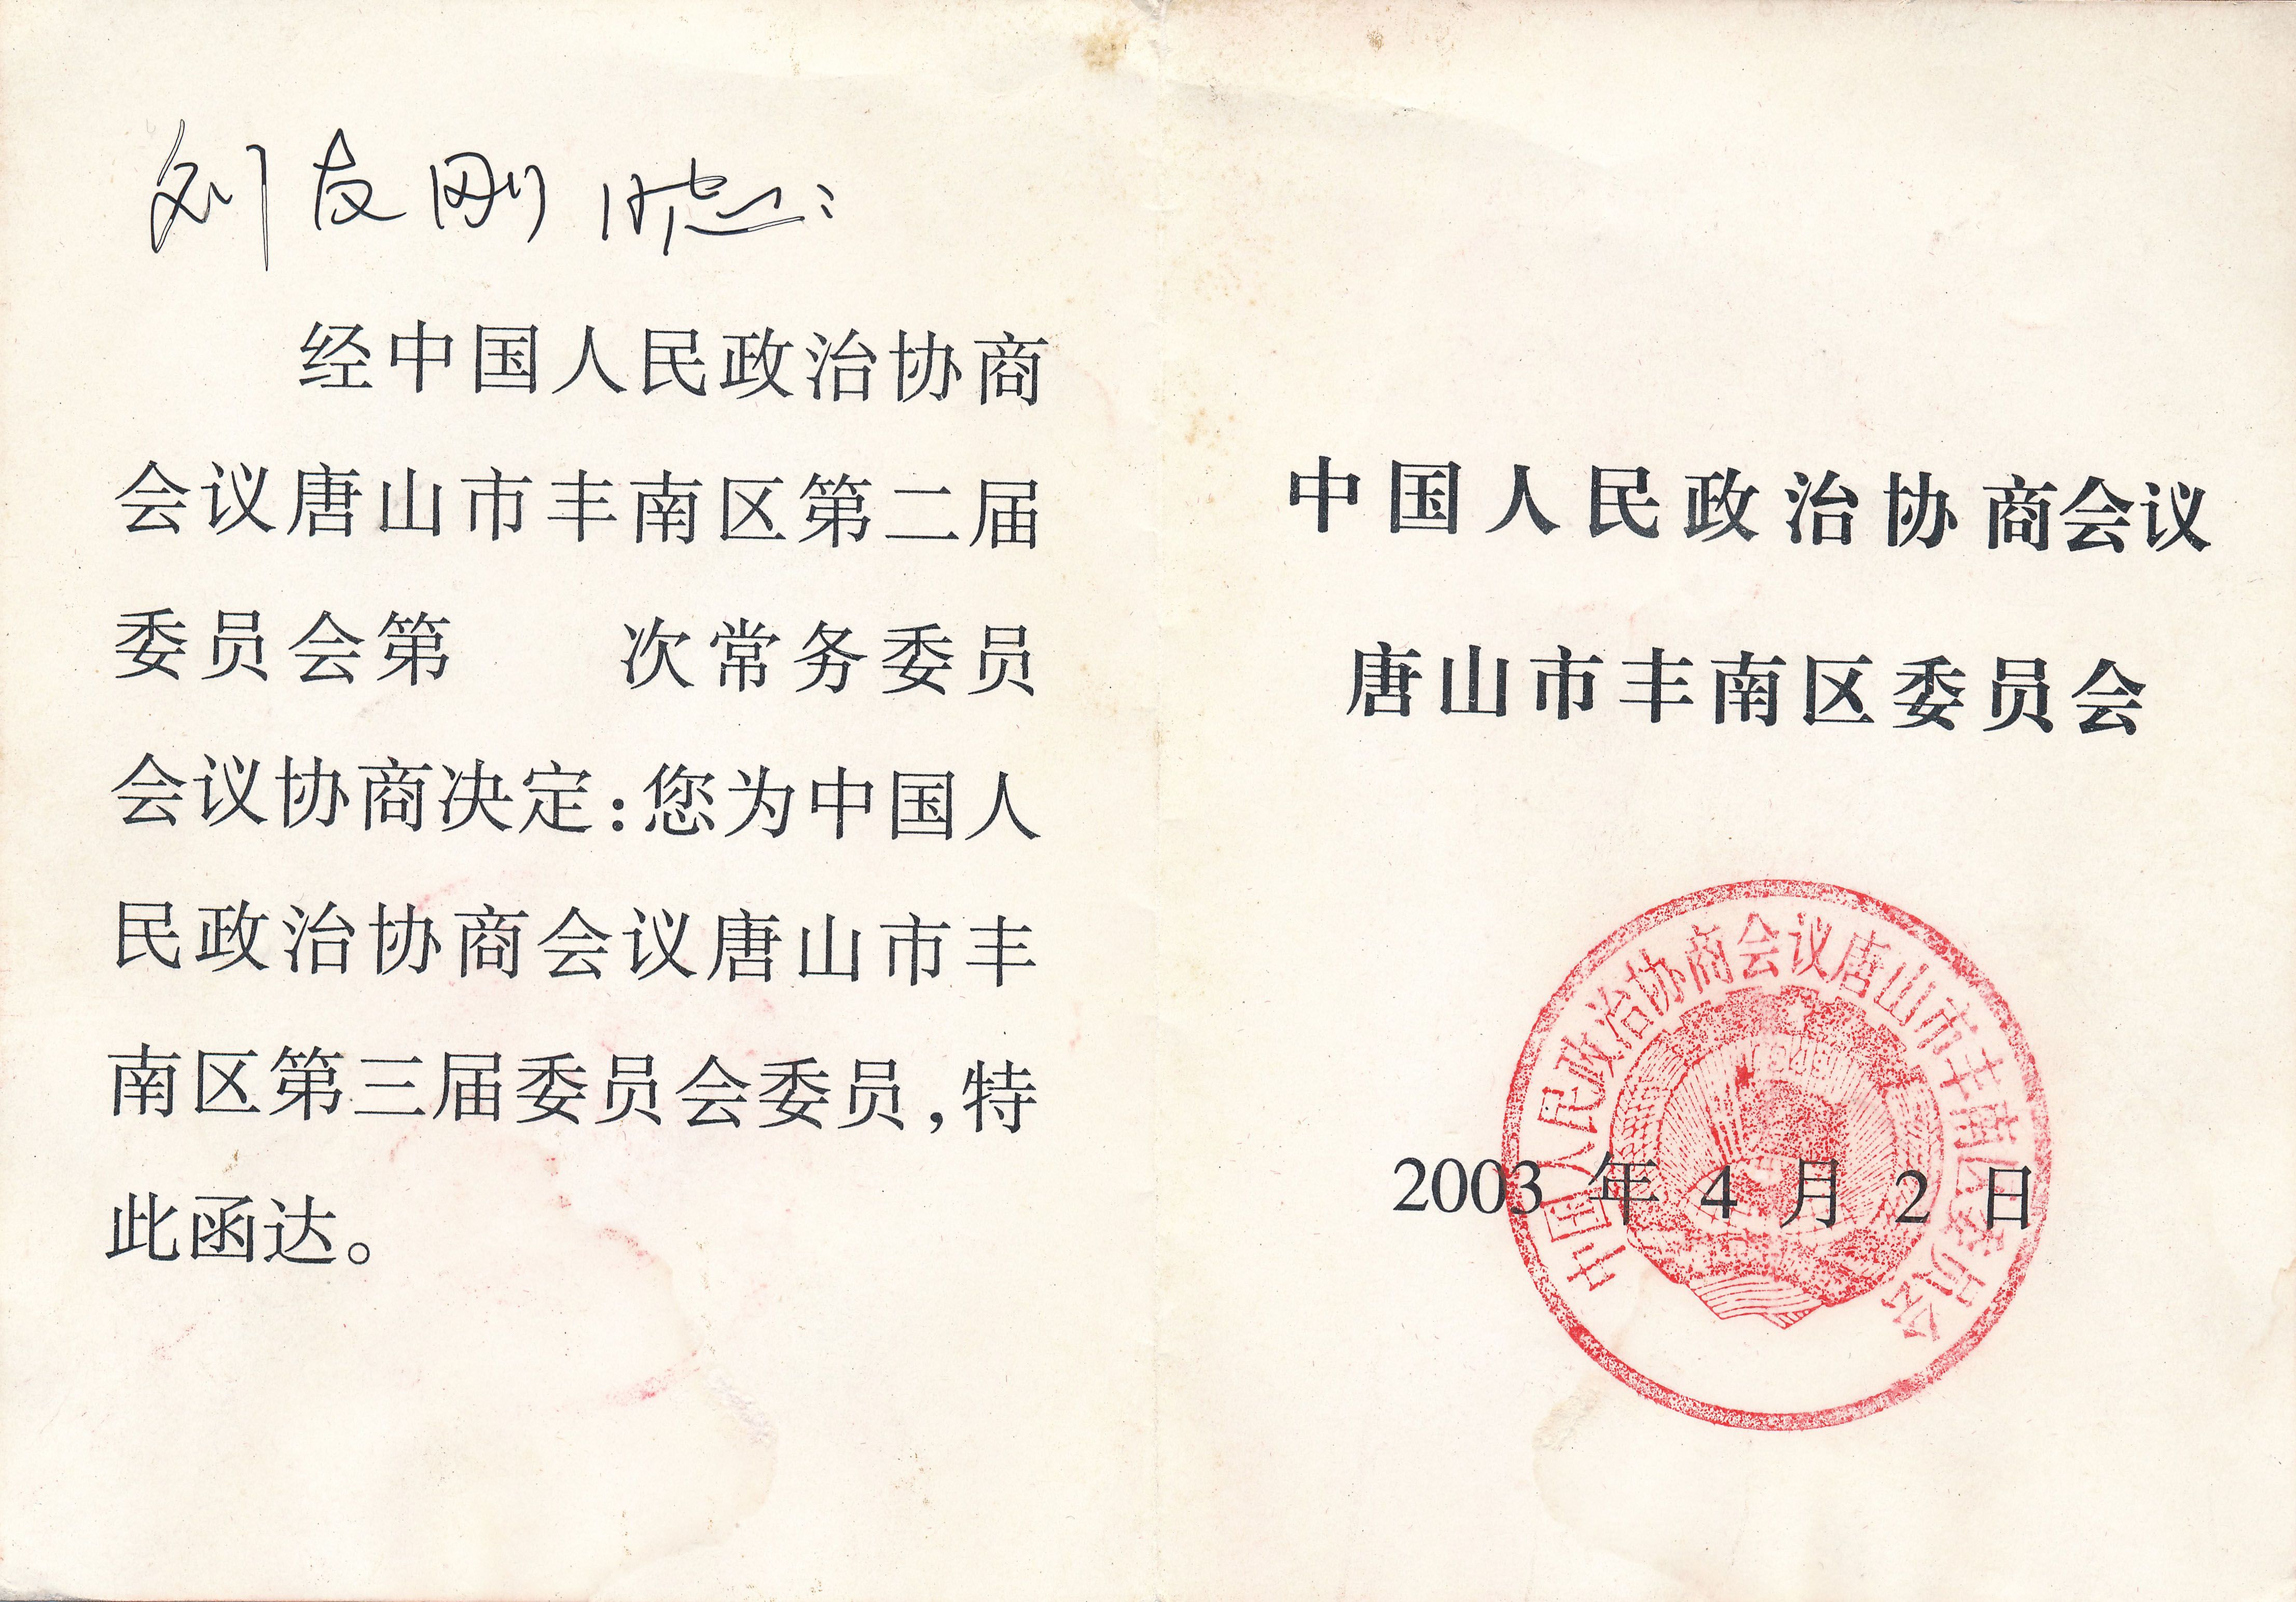 刘友刚同志：
经中国人民政治协商
会议唐山市丰南区第二届
委员会第　　次常务委员
会议协商决定：您为中国人
民政治协商会议唐山市丰
南区第三届委员会委员，特
此函达。
中国人民政治协商会议
唐山市丰南区委员会
中国人民政治协商会议唐山市丰南区委员会
1949
2003 年 4 月 2 日